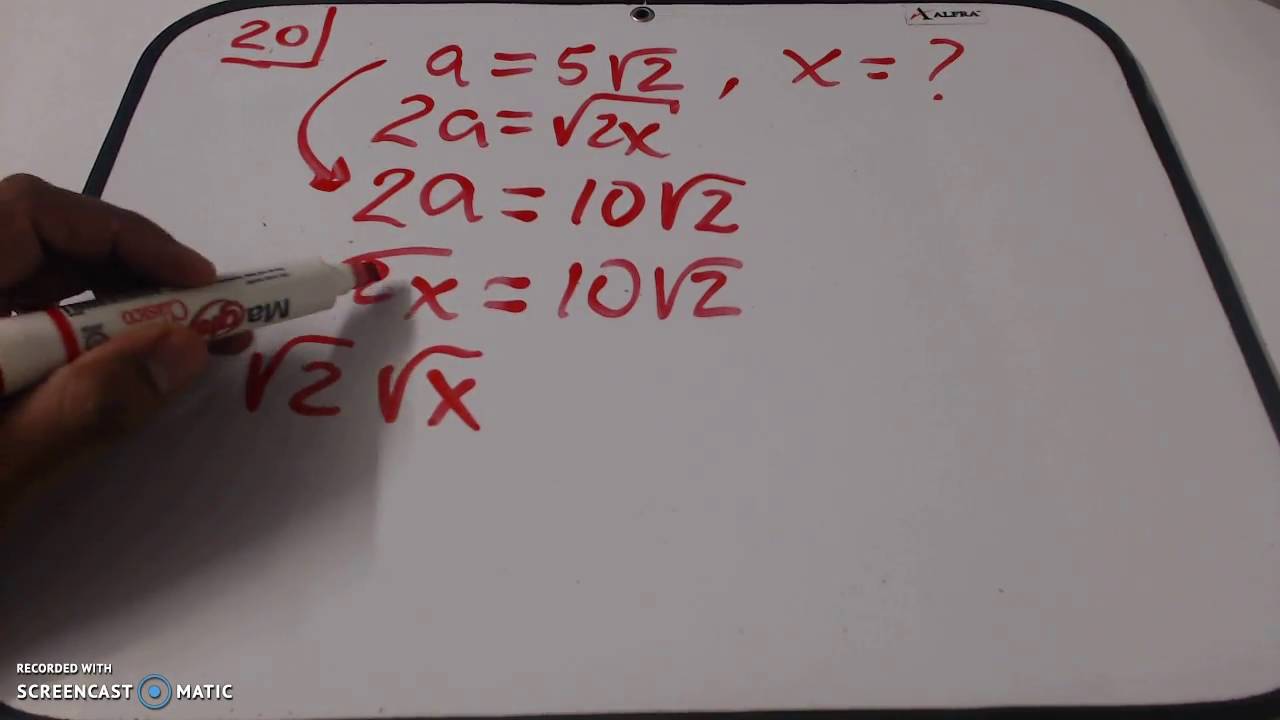 20
ALFRA
a = 5√2 , x = ?
2a = √2x
2a = 10√2
2x = 10√2
√2 √x
Clásico
RECORDED WITH
SCREENCAST MATIC